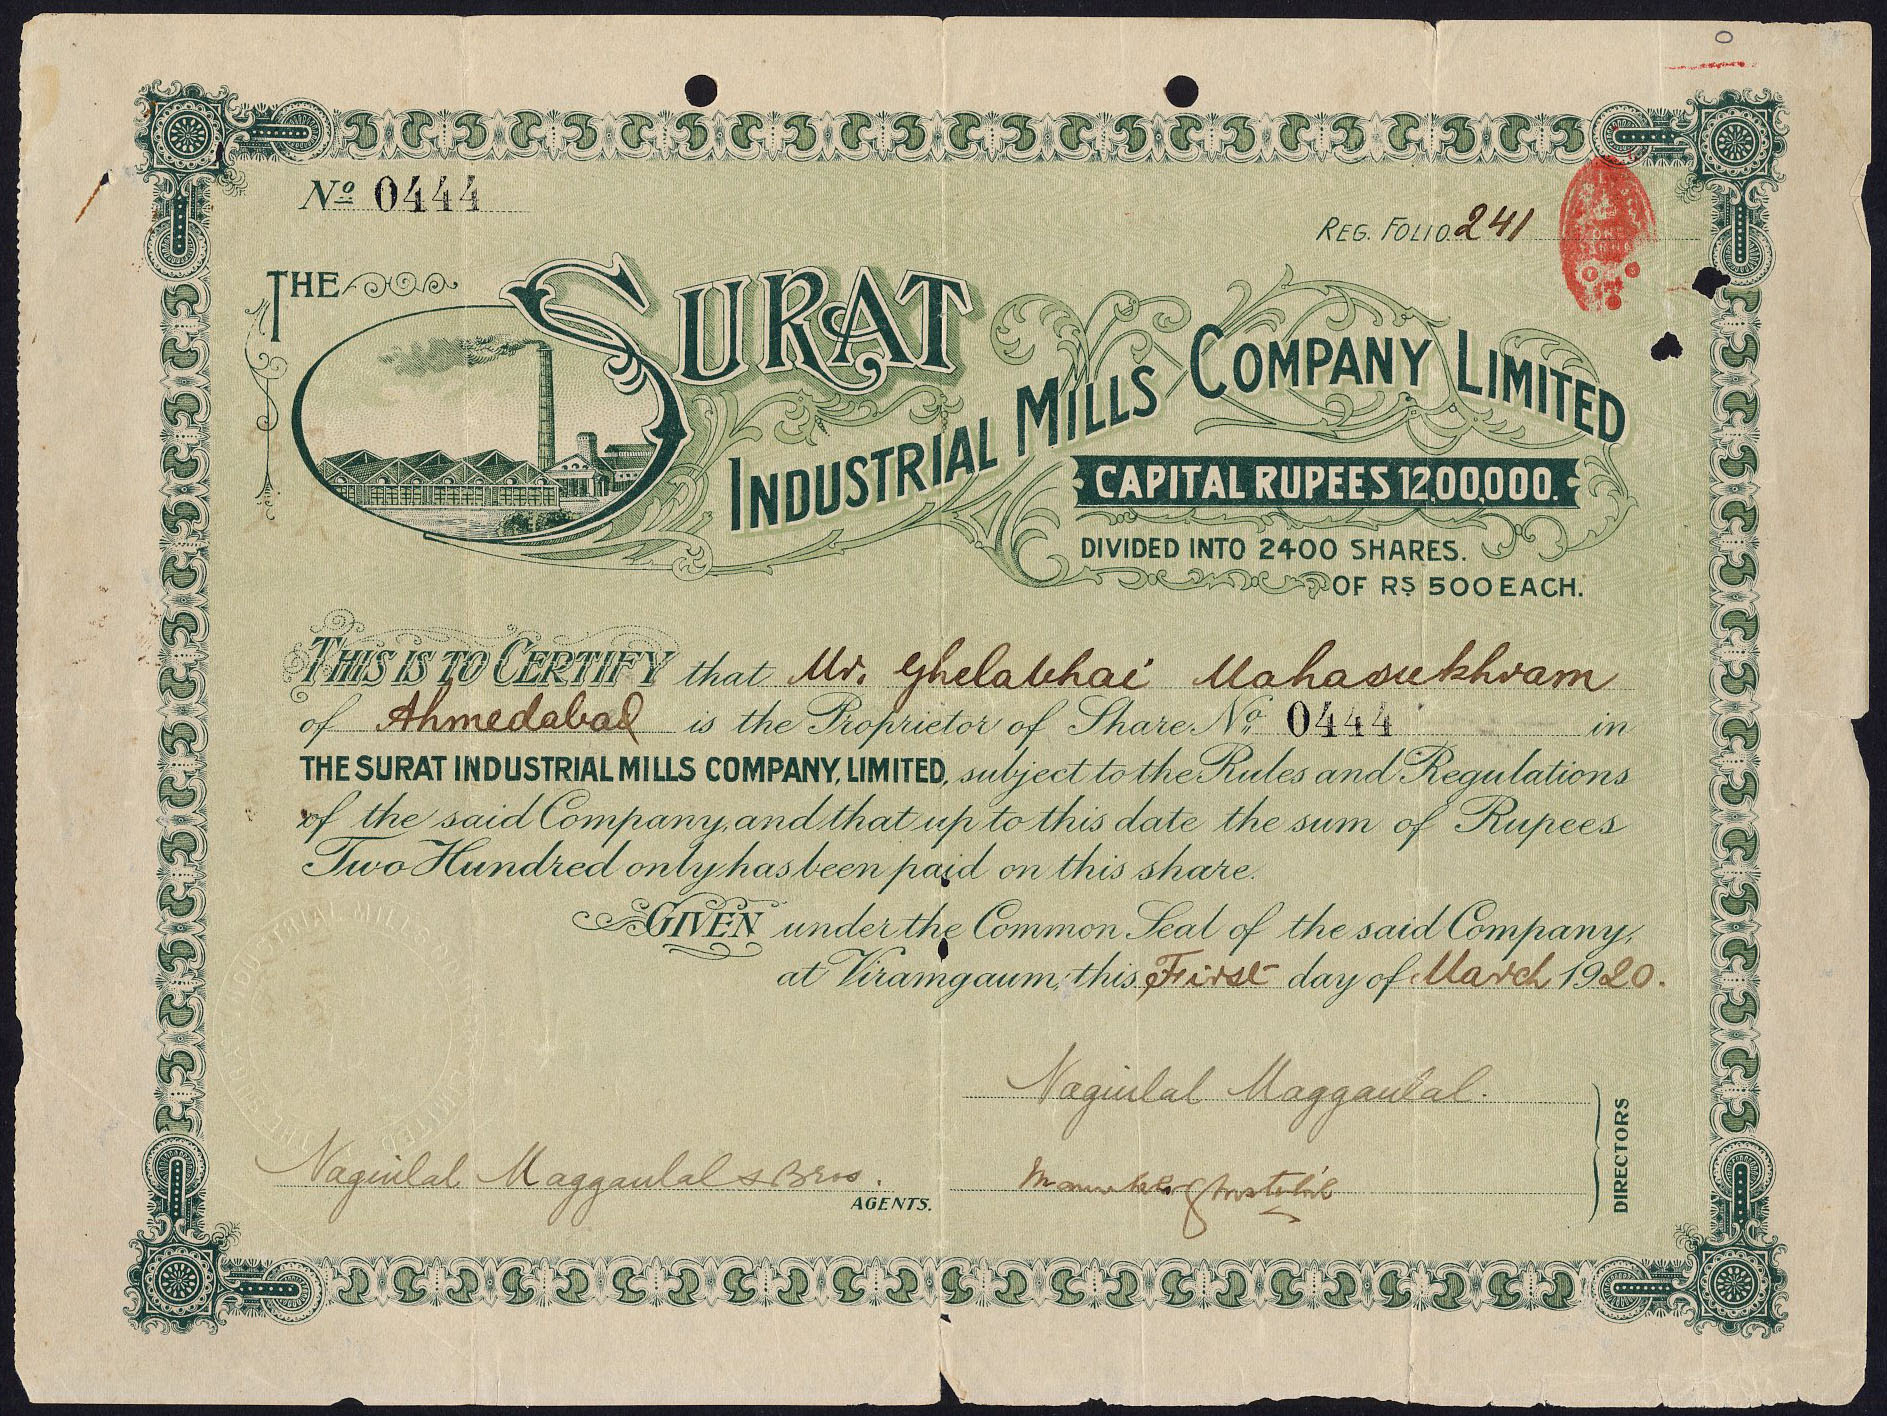 No 0444
REG. FOLIO 241
THE SURAT
INDUSTRIAL MILLS COMPANY LIMITED
CAPITAL RUPEES 12,00,000.
DIVIDED INTO 2400 SHARES.
OF RS 500 EACH.
THIS IS TO CERTIFY that Mr. Ghelabhai Mahasukhram
of Ahmedabad is the Proprietor of Share No. 0444 in
THE SURAT INDUSTRIAL MILLS COMPANY, LIMITED, subject to the Rules and Regulations
of the said Company, and that up to this date the sum of Rupees
Two Hundred only has been paid on this share.
GIVEN under the Common Seal of the said Company,
at Viramgaum, this First day of March 1920.
Naginlal Magganlal.
DIRECTORS
Naginlal Magganlal & Bros.
AGENTS.
THE SURAT INDUSTRIAL MILLS COMPANY LIMITED